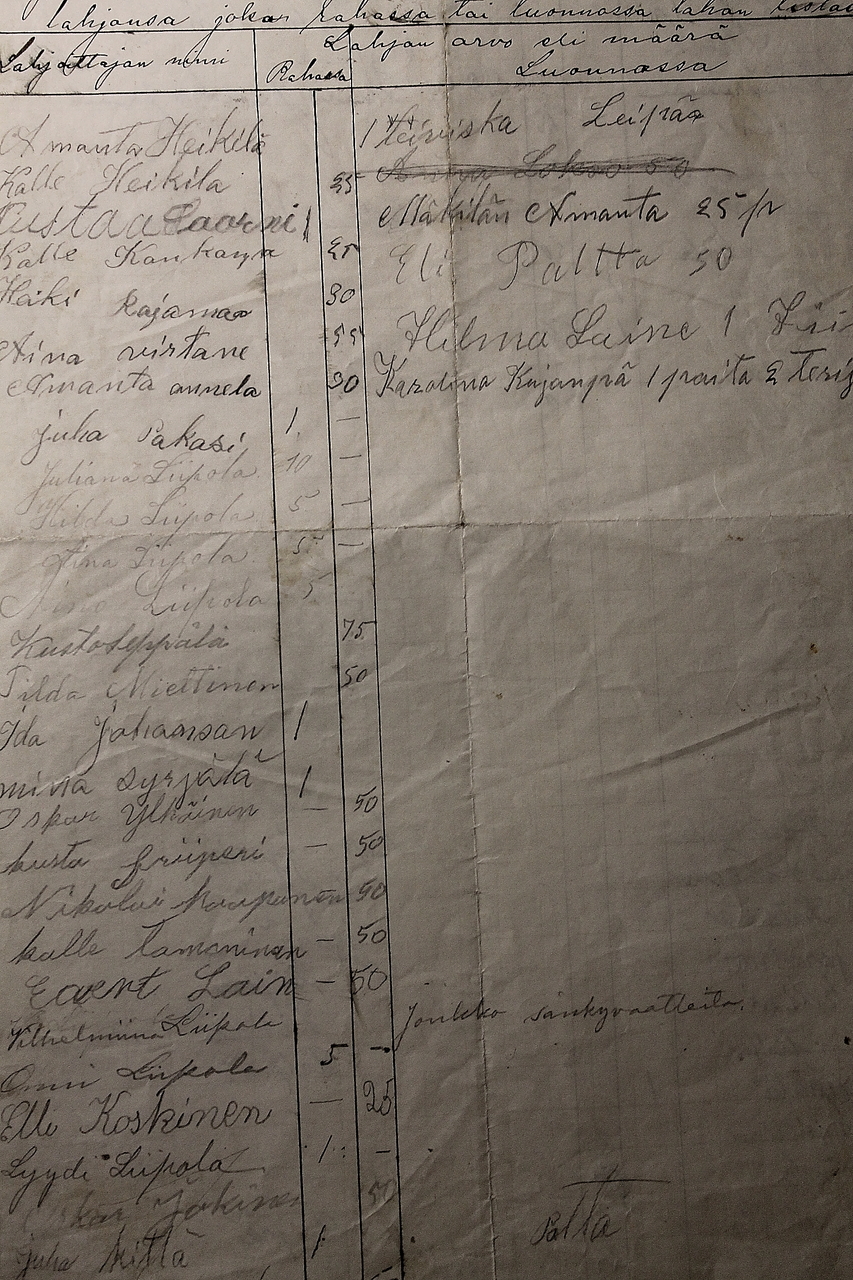 lahjansa jokas rahassa tai luonnossa tahan
Lahjan arvo eli määrä
Lahjottajan nimi Rahassa Luonnossa
Amanta Heikilä 1 leiviska Leipää
Kalle Heikila 25
Kustaa 1 Mäkilän Amanta 25 pr
Kalle Kankanpä 25 Eli Paltta 50
Heiki Rajamaa 30
Aina virtane 55 Hilma Laine 1
Amanta annela 30 Karolina Kujanpä 1 paita 2
juha Pakasi 1 —
Juliana Liipola 10 —
Hilda Liipola 5 —
Aina Liipola 5 —
Liipola 5
Kusto Seppälä 75
Tilda Miettinen 50
Ida Johansson 1
miina syrjälä 1
Oskar Ylhäinen — 50
kusta friiperi — 50
Nikolai 50
kalle tamminen — 50
Evert Lain — 50
Vilhelmiina Liipola joukko sänkyvaatteita.
Onni Liipola 5 —
Elli Koskinen — 25
Lyydi Liipola 1 —
Jokinen 50
juha 1 Patta